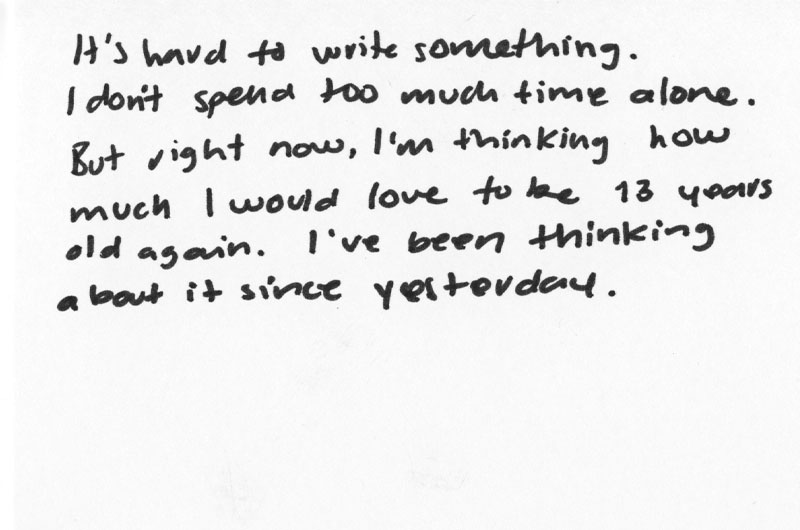 It's hard to write something.
I don't spend too much time alone.
But right now, I'm thinking how
much I would love to be 13 years
old again. I've been thinking
about it since yesterday.